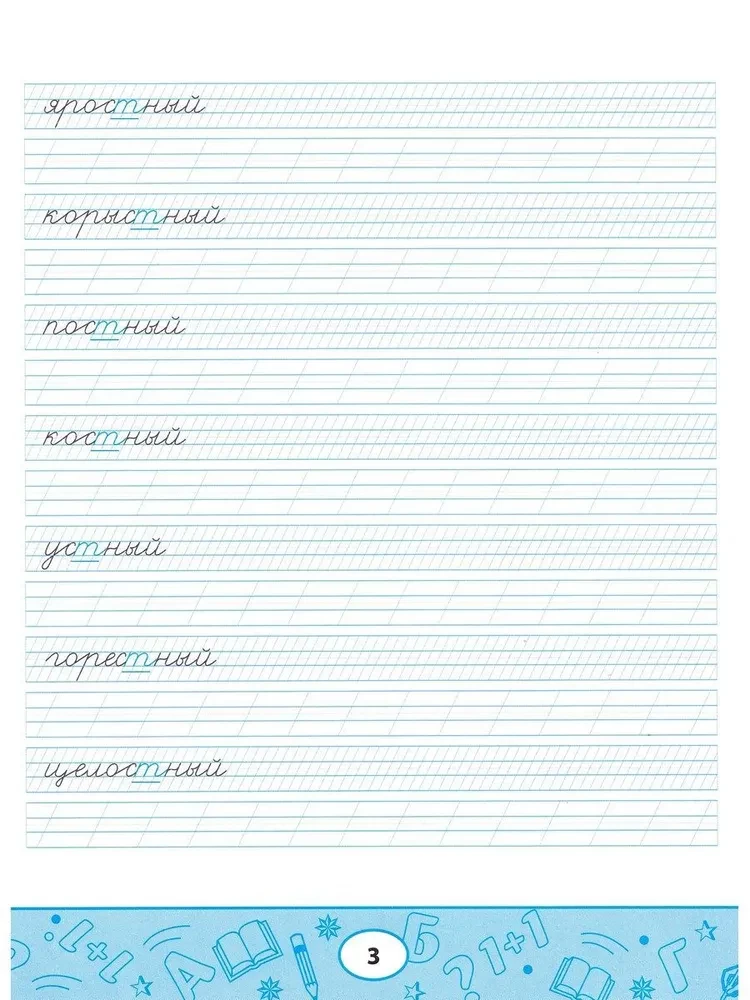 яростный
корыстный
постный
костный
устный
горестный
целостный
1+1
А
Б
?
1+1
Г
3